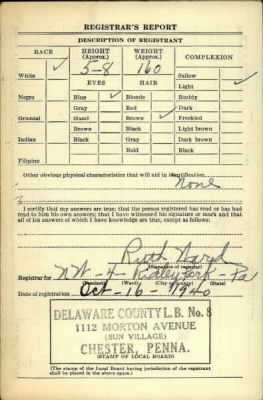 REGISTRAR'S REPORT
DESCRIPTION OF REGISTRANT
RACE HEIGHT (Approx.) WEIGHT (Approx.) COMPLEXION
White ✓ 5-8 160 Sallow
Light ✓
EYES HAIR
Negro Blue ✓ Blonde Ruddy
Gray Red Dark
Oriental Hazel Brown ✓ Freckled
Brown Black Light brown
Indian Black Gray Dark brown
Bald Black
Filipino
Other obvious physical characteristics that will aid in identification
None
I certify that my answers are true; that the person registered has read or has had
read to him his own answers; that I have witnessed his signature or mark and that
all of his answers of which I have knowledge are true, except as follows:
Ruth
(Signature of registrar)
Registrar for NW-4 Ridley Park - Pa
(Precinct) (Ward) (City or county) (State)
Date of registration Oct-16-1940
DELAWARE COUNTY L.B. No. 8
1112 MORTON AVENUE
(SUN VILLAGE)
CHESTER, PENNA.
(STAMP OF LOCAL BOARD)
(The stamp of the Local Board having jurisdiction of the registrant
shall be placed in the above space.)